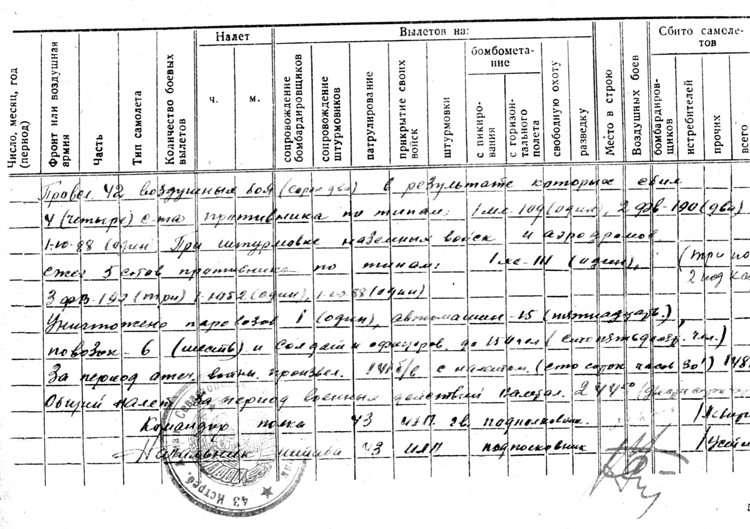 Число, месяц, год (период)
Фронт или воздушная армия
Часть
Тип самолета
Количество боевых вылетов
Налет
ч.
м.
Вылетов на:
сопровождение бомбардировщиков
сопровождение штурмовиков
патрулирование
прикрытие своих войск
штурмовки
бомбометание
с пикирования
с горизонтального полета
свободную охоту
разведку
Место в строю
Воздушных боев
Сбито самолетов
бомбардировщиков
истребителей
прочих
всего
Провел 42 воздушных боя (сорок два) в результате которых сбил
4 (четыре) с-та противника по типам: 1 ме-109 (один), 2 фв-190 (два)
1-ю-88 (один) При штурмовке наземных войск и аэродромов
сжег 5 с-тов противника по типам: 1 ме-111 (один), (три
3 фв-190 (три) (один), 1-ю-88 (один) 2 под
Уничтожено паровозов 1 (один), автомашин-15 (пятнадцать)
повозок-6 (шесть) и солдат и офицеров до 154 чел (сто пятьдесят, чел.)
За период отеч. войны произвел 141 б/в с налетом (сто сорок часов 30') 148
Общий налет за период военных действий 244
Командир полка 43 ИАП гв. подполковник
Начальник штаба 43 ИАП подполковник
43 Истреб.